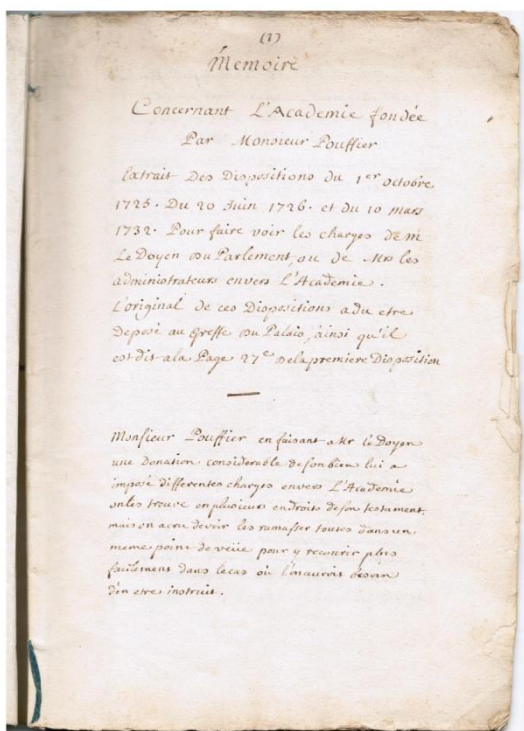 (1)
Mémoire
Concernant L'Academie fondée
Par Monsieur Pouffier
Extrait Des Dispositions du 1er octobre
1725. Du 20 Juin 1726. et du 10 mars
1732. Pour faire voir les charges De m
Le Doyen du Parlement, ou de Mrs les
administrateurs envers L'Academie.
L'original de ces Dispositions a du etre
Deposé au Greffe du Palais, ainsi qu'il
est dit a la Page 27e de la premiere Disposition
Monsieur Pouffier en faisant a Mr le Doyen
une Donation considerable de son bien lui a
imposé differentes charges envers L'Academie
on les trouve en plusieurs endroits de son testament,
mais on a cru devoir les ramasser toutes dans un
meme point de veüe pour y recourir plus
facilement dans le cas où l'on auroit besoin
d'en etre instruit.